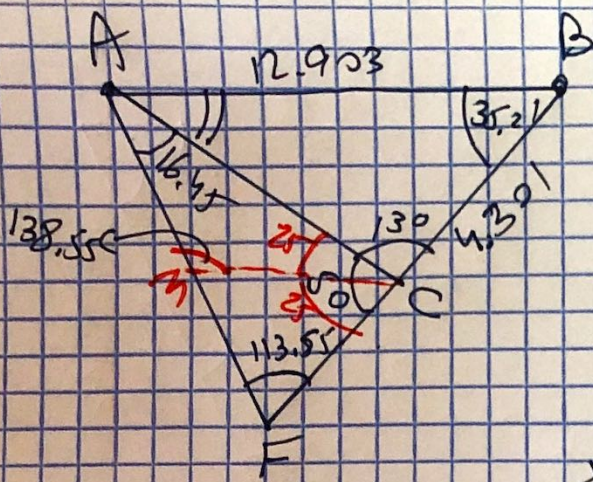 A
B
12.903
35.21
16.45
138.55
130
4.301
25
M
50
C
25
113.55
F